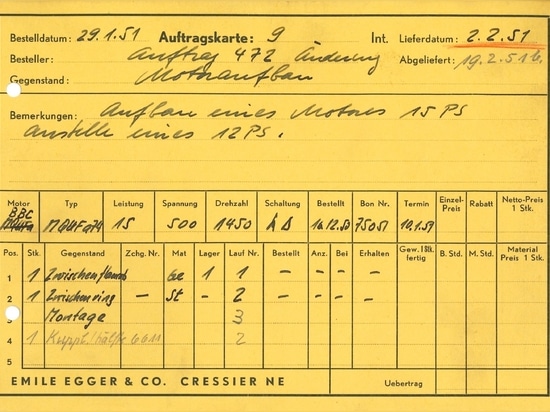 Bestelldatum: 29.1.51 Auftragskarte: 9 Int. Lieferdatum: 2.2.51
Besteller: Auftrag 472 Änderung Abgeliefert: 19.2.51
Gegenstand: Motoraufbau
Bemerkungen: Aufbau eines Motores 15 PS
anstelle eines 12 PS.
Motor Typ Leistung Spannung Drehzahl Schaltung Bestellt Bon Nr. Termin Einzel-Preis Rabatt Netto-Preis 1 Stk.
BBC MQUFa74 15 500 1450 16.12.50 75051 10.1.51
Pos. Stk. Gegenstand Zchg. Nr. Mat Lager Lauf Nr. Bestellt Anz. Bei Erhalten Gew. 1 Stk. fertig B. Std. M. Std. Material Preis 1 Stk.
1 1 Zwischenflansch Ge 1 1 – – –
2 1 Zwischenring – St – 2 – – –
3 Montage 3
4 1 Kuppl. hälfte 6011 2
5
EMILE EGGER & CO. CRESSIER NE Uebertrag